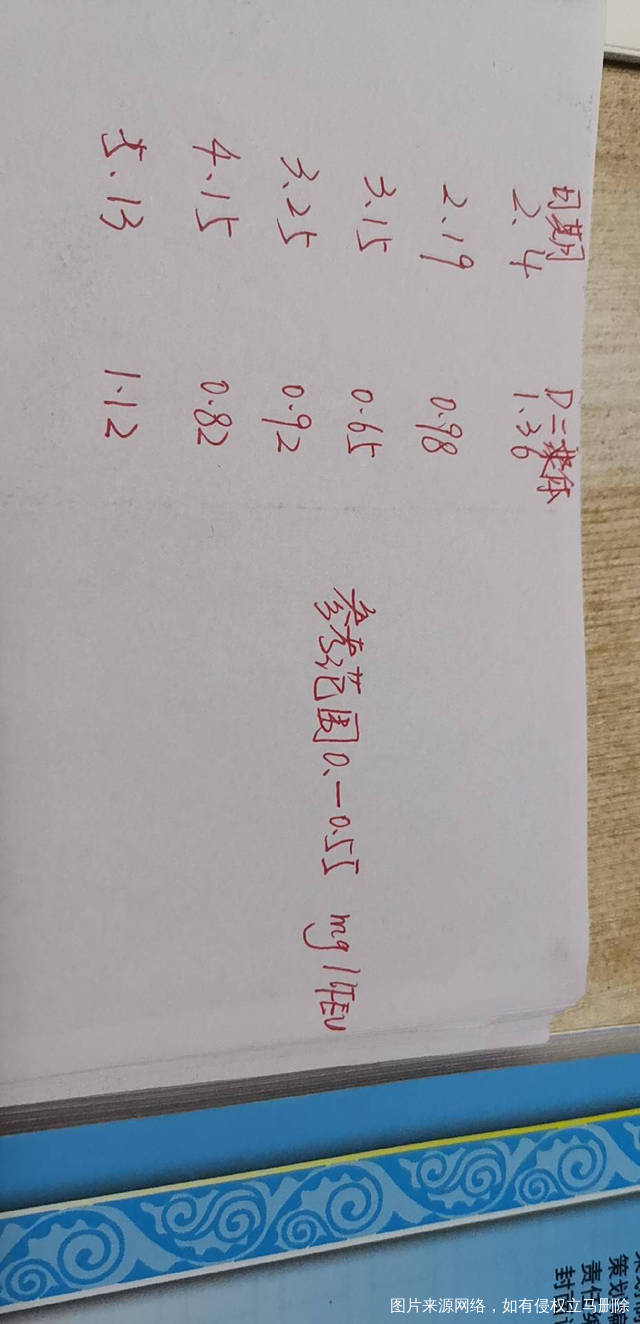 日期 D二聚体
2.4 1.36
2.19 0.98
3.15 0.65
3.25 0.92
4.15 0.82
5.13 1.12
参考范围0.—0.55 mg/LFEU
策划
责任
封面
图片来源网络，如有侵权立马删除